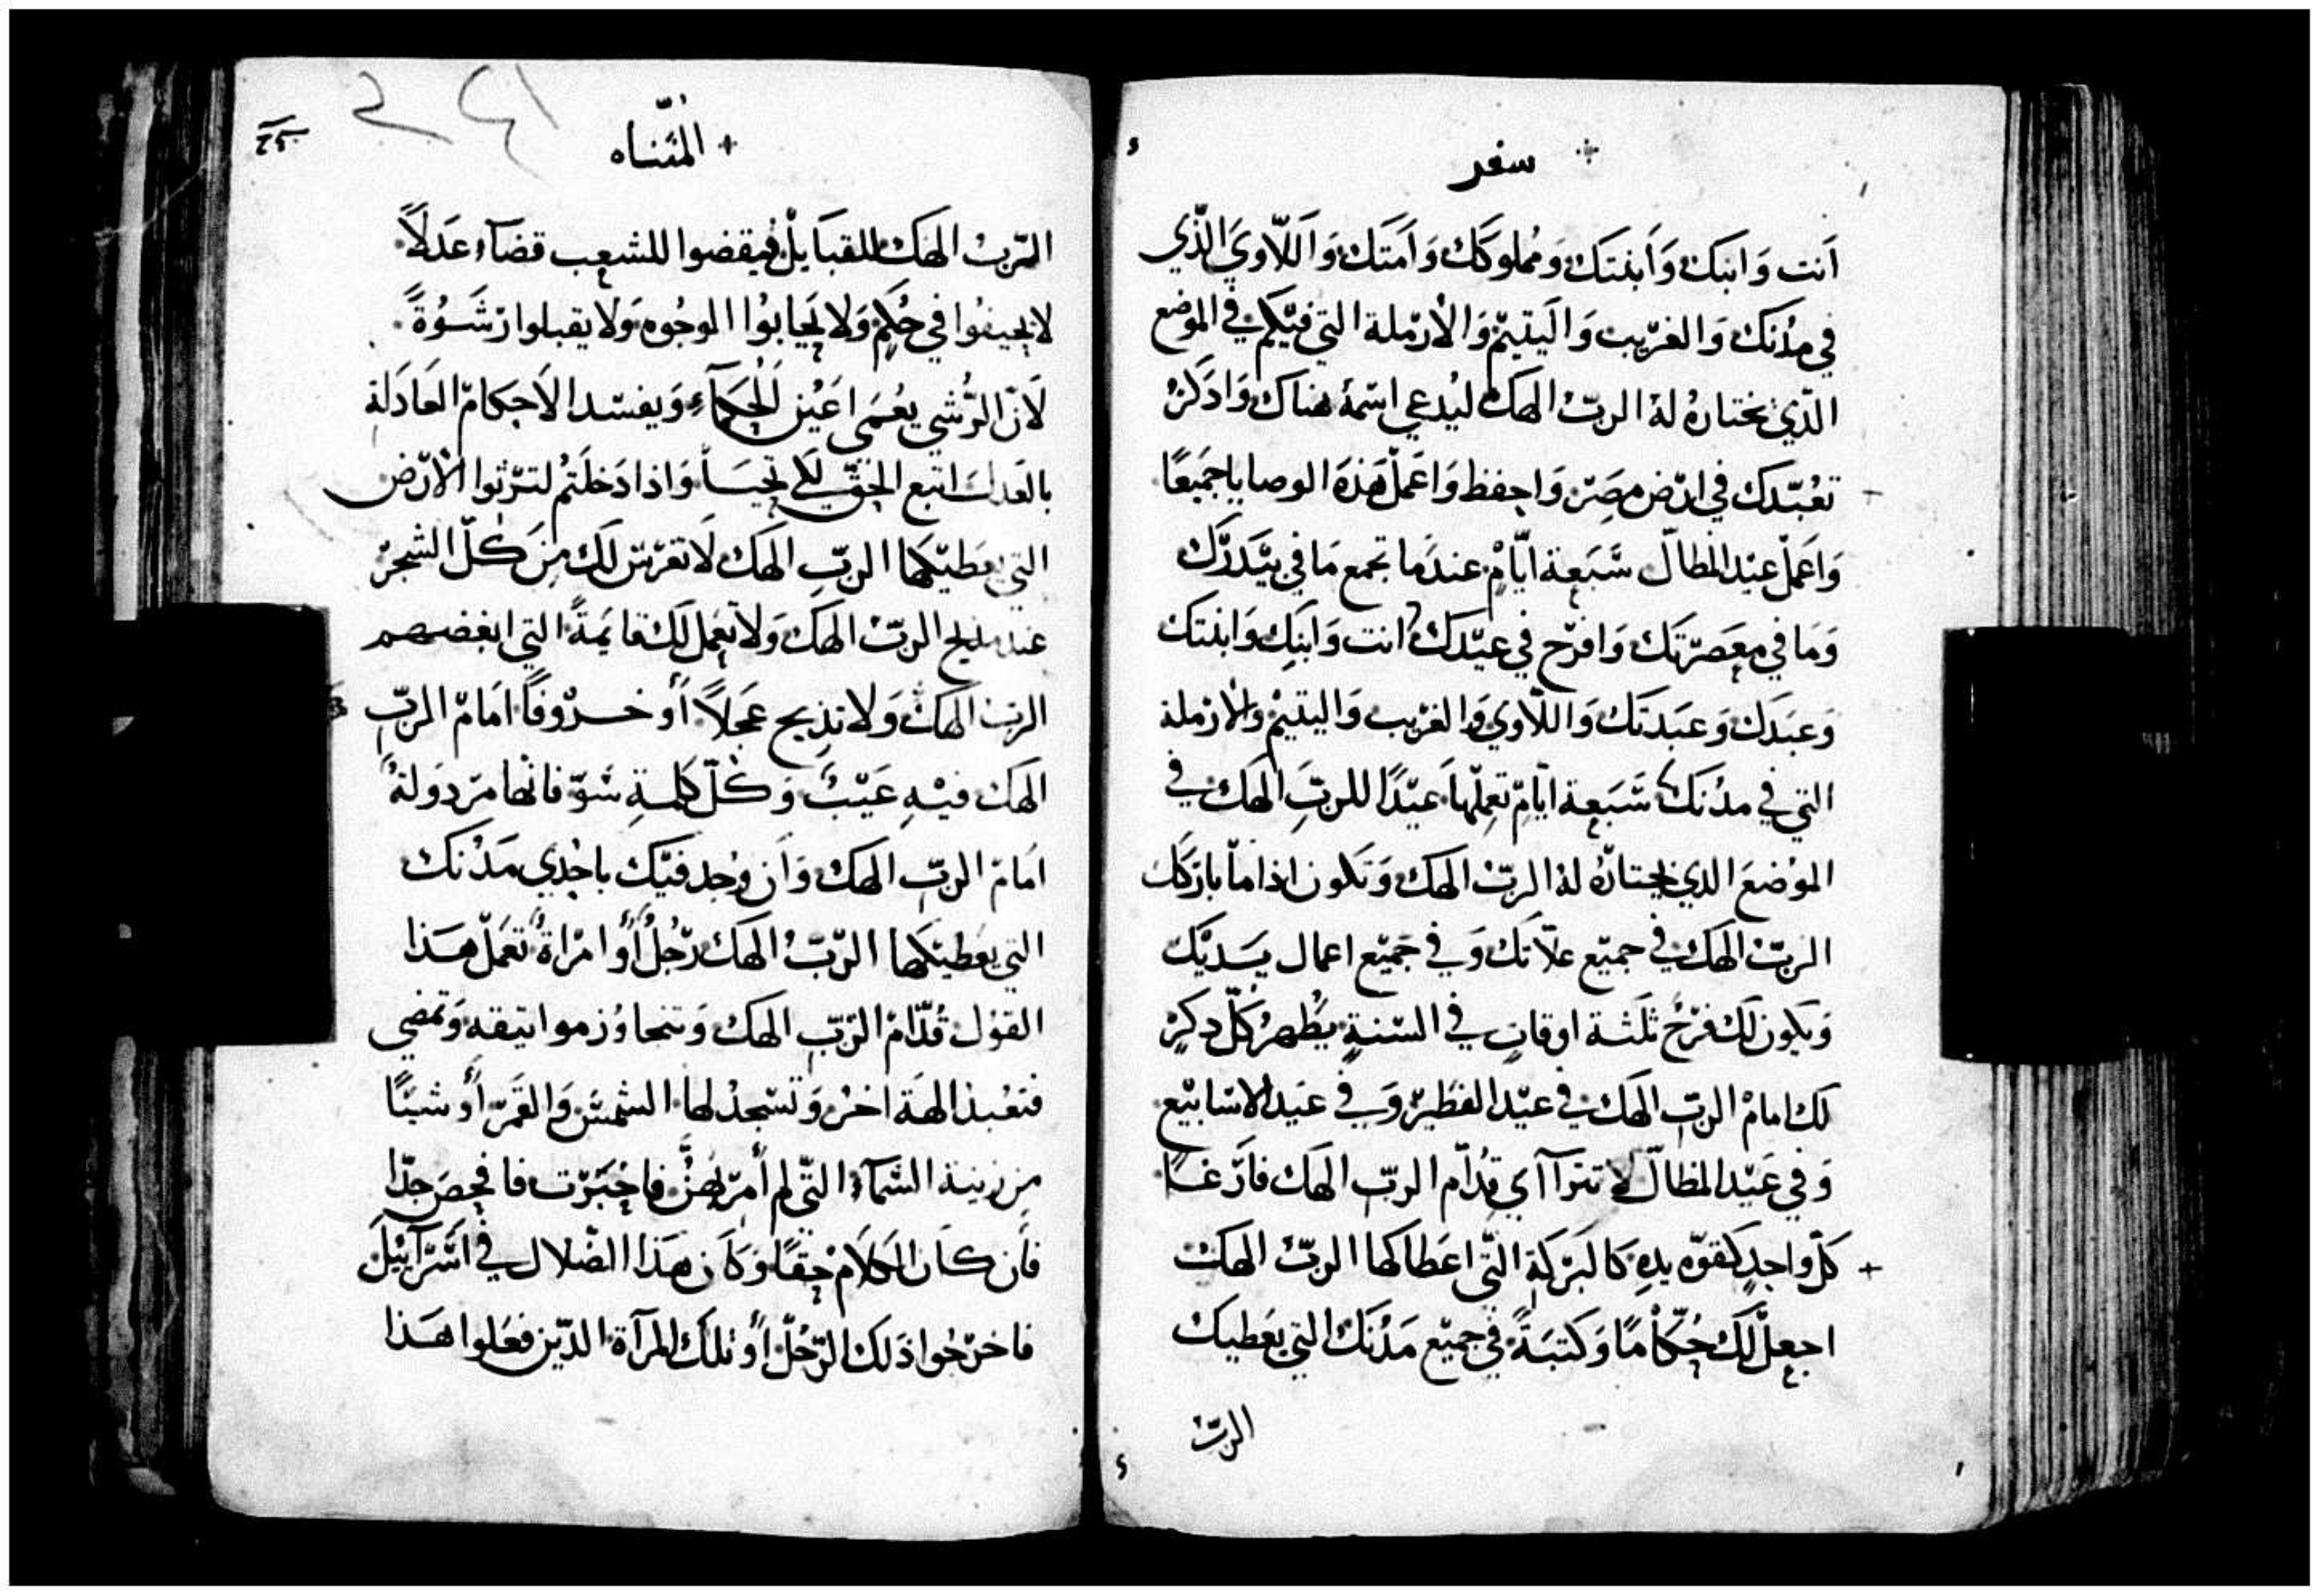 سفر
أنت وابنك وأبنتك ومملوكك وأمتك واللاوي الذي
في مدنك والغريب واليتيم والأرملة التي فيكم في الموضع
الذي يختاره له الرب الهك ليدعي اسمه هناك واذكر
تعبدك في ارض مصر واحفظ واعمل هذه الوصايا جميعًا
واعمل عيد المطال سبعة ايام عندما تجمع ما في بيدرك
وما في معصرتك وافرح في عيدك انت وابنك وابنتك
وعبدك وعبدتك واللاوي والغريب واليتيم والارملة
التي في مدنك سبعة ايام تعملها عيدًا للرب الهك في
الموضع الدي يختاره له الرب الهك وتكون اذا ما باركك
الرب الهك في جميع علاتك وفي جميع اعمال يديك
ويكون لك فرح ثلثة اوقات في السنة يظهر كل دكر
لك امام الرب الهك في عيد الفطير وفي عيد الاسابيع
وفي عيد المظال لا تترآأي قدام الرب الهك فارغا
كل واحد كقوه يده كالبركة التي اعطاكها الرب الهك
اجعل لك حكامًا وكتبةً في جميع مدنك التي يعطيك
الرب
المثناه
الرب الهك للقبايل فيقضوا للشعب قضاء عدلاً
لا يحيفوا في حكم ولا يحابوا الوجوه ولا يقبلوا رشوةً
لان الرشي يعمي اعين الحكماء ويفسد الاحكام العادلة
بالعدل اتبع الحق لكي تحيا واذا دخلتم لترثوا الارض
التي يعطيكها الرب الهك لا تغرس لك من كل الشجر
عند مذبح الرب الهك ولا تعمل لك قايمةً التي ابغضهم
الرب الهك ولا تذبح عجلاً أو خروفًا امام الرب
الهك فيه عيب وكل كلمة سو فانها مردولة
امام الرب الهك وأن وجد فيك باحدي مدنك
التي يعطيكها الرب الهك رجل أو امراة تعمل هذا
القول قدام الرب الهك وتتجاوز مواتيقه وتمضي
فتعبد الهة اخر وتسجد لها الشمس والقمر أو شيًا
من زينة السماء التي لم أمر بهن فاخبرت فافحص جدا
فأن كان الكلام حقًا وكأن هذا الضلال في اسرآئيل
فاخرجوا ذلك الرجل أو تلك المرآة الدين فعلوا هذا